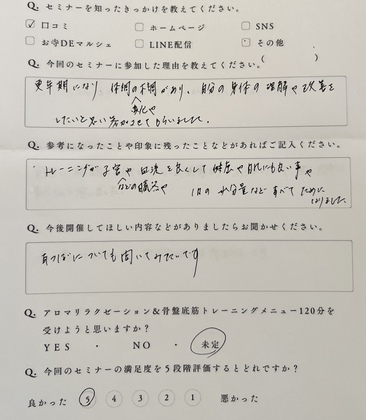 Q. セミナーを知ったきっかけを教えてください。
☑ 口コミ □ ホームページ □ SNS
□ お寺DEマルシェ □ LINE配信 □ その他
( )
Q. 今回のセミナーに参加した理由を教えてください。
更年期になり 体調の不調があり、自分の身体の理解や改善を
したいと思い参加させてもらいました。
Q. 参考になったことや印象に残ったことなどがあればご記入ください。
トレーニングが 血流を良くして 健康や 肌にも良い事や
1日の 水分量など すべて ために
なりました
Q. 今後開催してほしい内容などがありましたらお聞かせください。
耳つぼについても聞いてみたいです
Q. アロマリラクゼーション&骨盤底筋トレーニングメニュー120分を
受けようと思いますか?
YES ・ NO ・ 未定
Q. 今回のセミナーの満足度を5段階評価するとどれですか?
良かった 5 4 3 2 1 悪かった